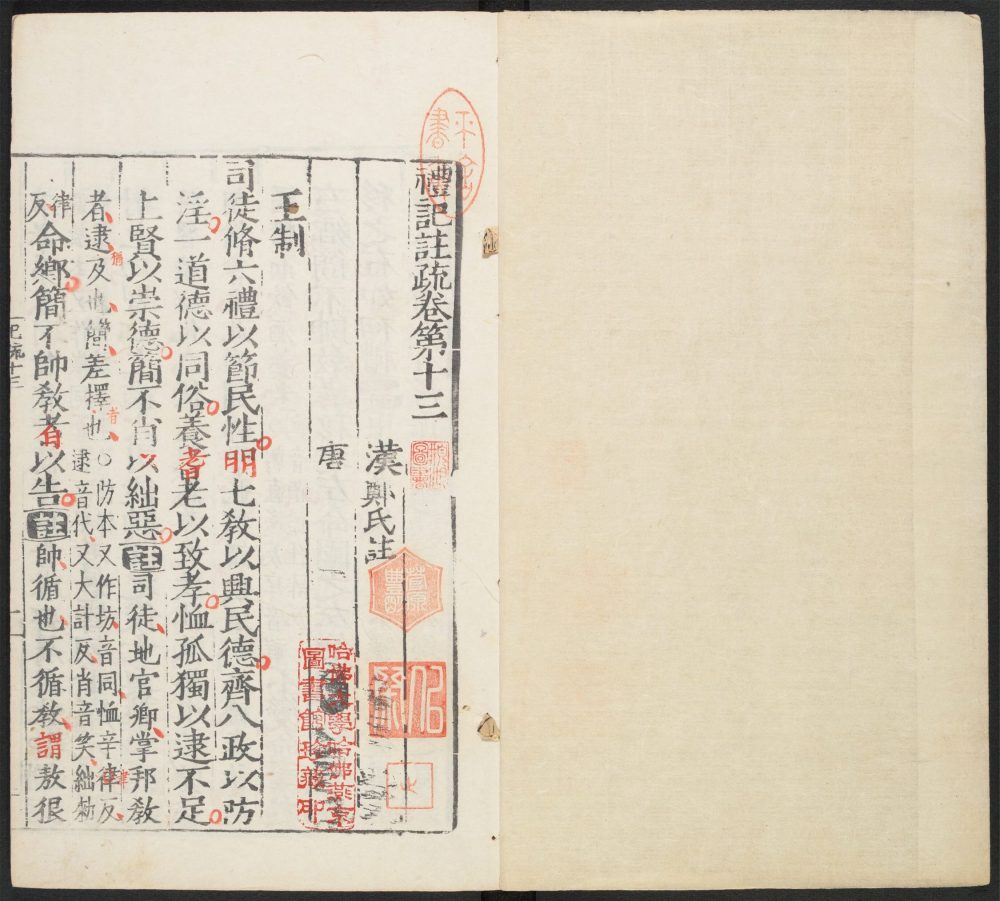 禮記註疏卷第十三
漢鄭氏註
唐
王制
司徒脩六禮以節民性明七教以興民德齊八政以防
淫一道德以同俗養耆老以致孝恤孤獨以逮不足
上賢以崇德簡不肖以絀惡註司徒地官卿掌邦教
者逮及也簡差擇也○防本又作坊音同恤辛律反
逮音代又大計反肖音笑絀勑
律反命鄉簡不帥教者以告註帥循也不循教謂敖很
哈佛大學哈佛燕京
圖書館珍藏印